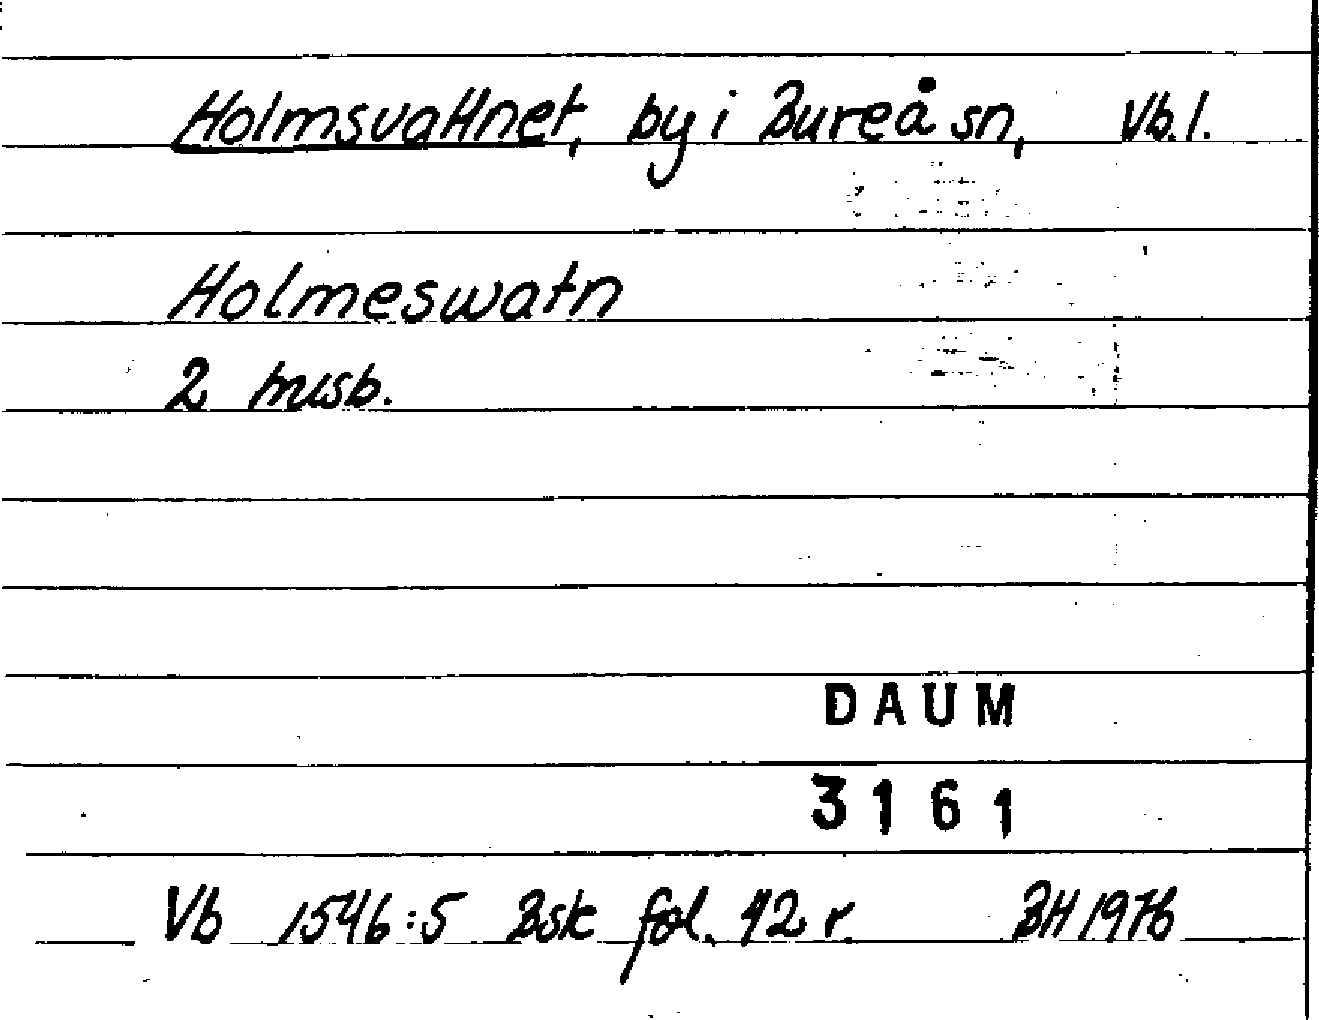 Holmsvattnet, by i Bureå sn, Vb. l.
Holmeswatn
2 mısb.
DAUM
3161
Vb 1546:5 Bsk fol. 42 r. BH 1976